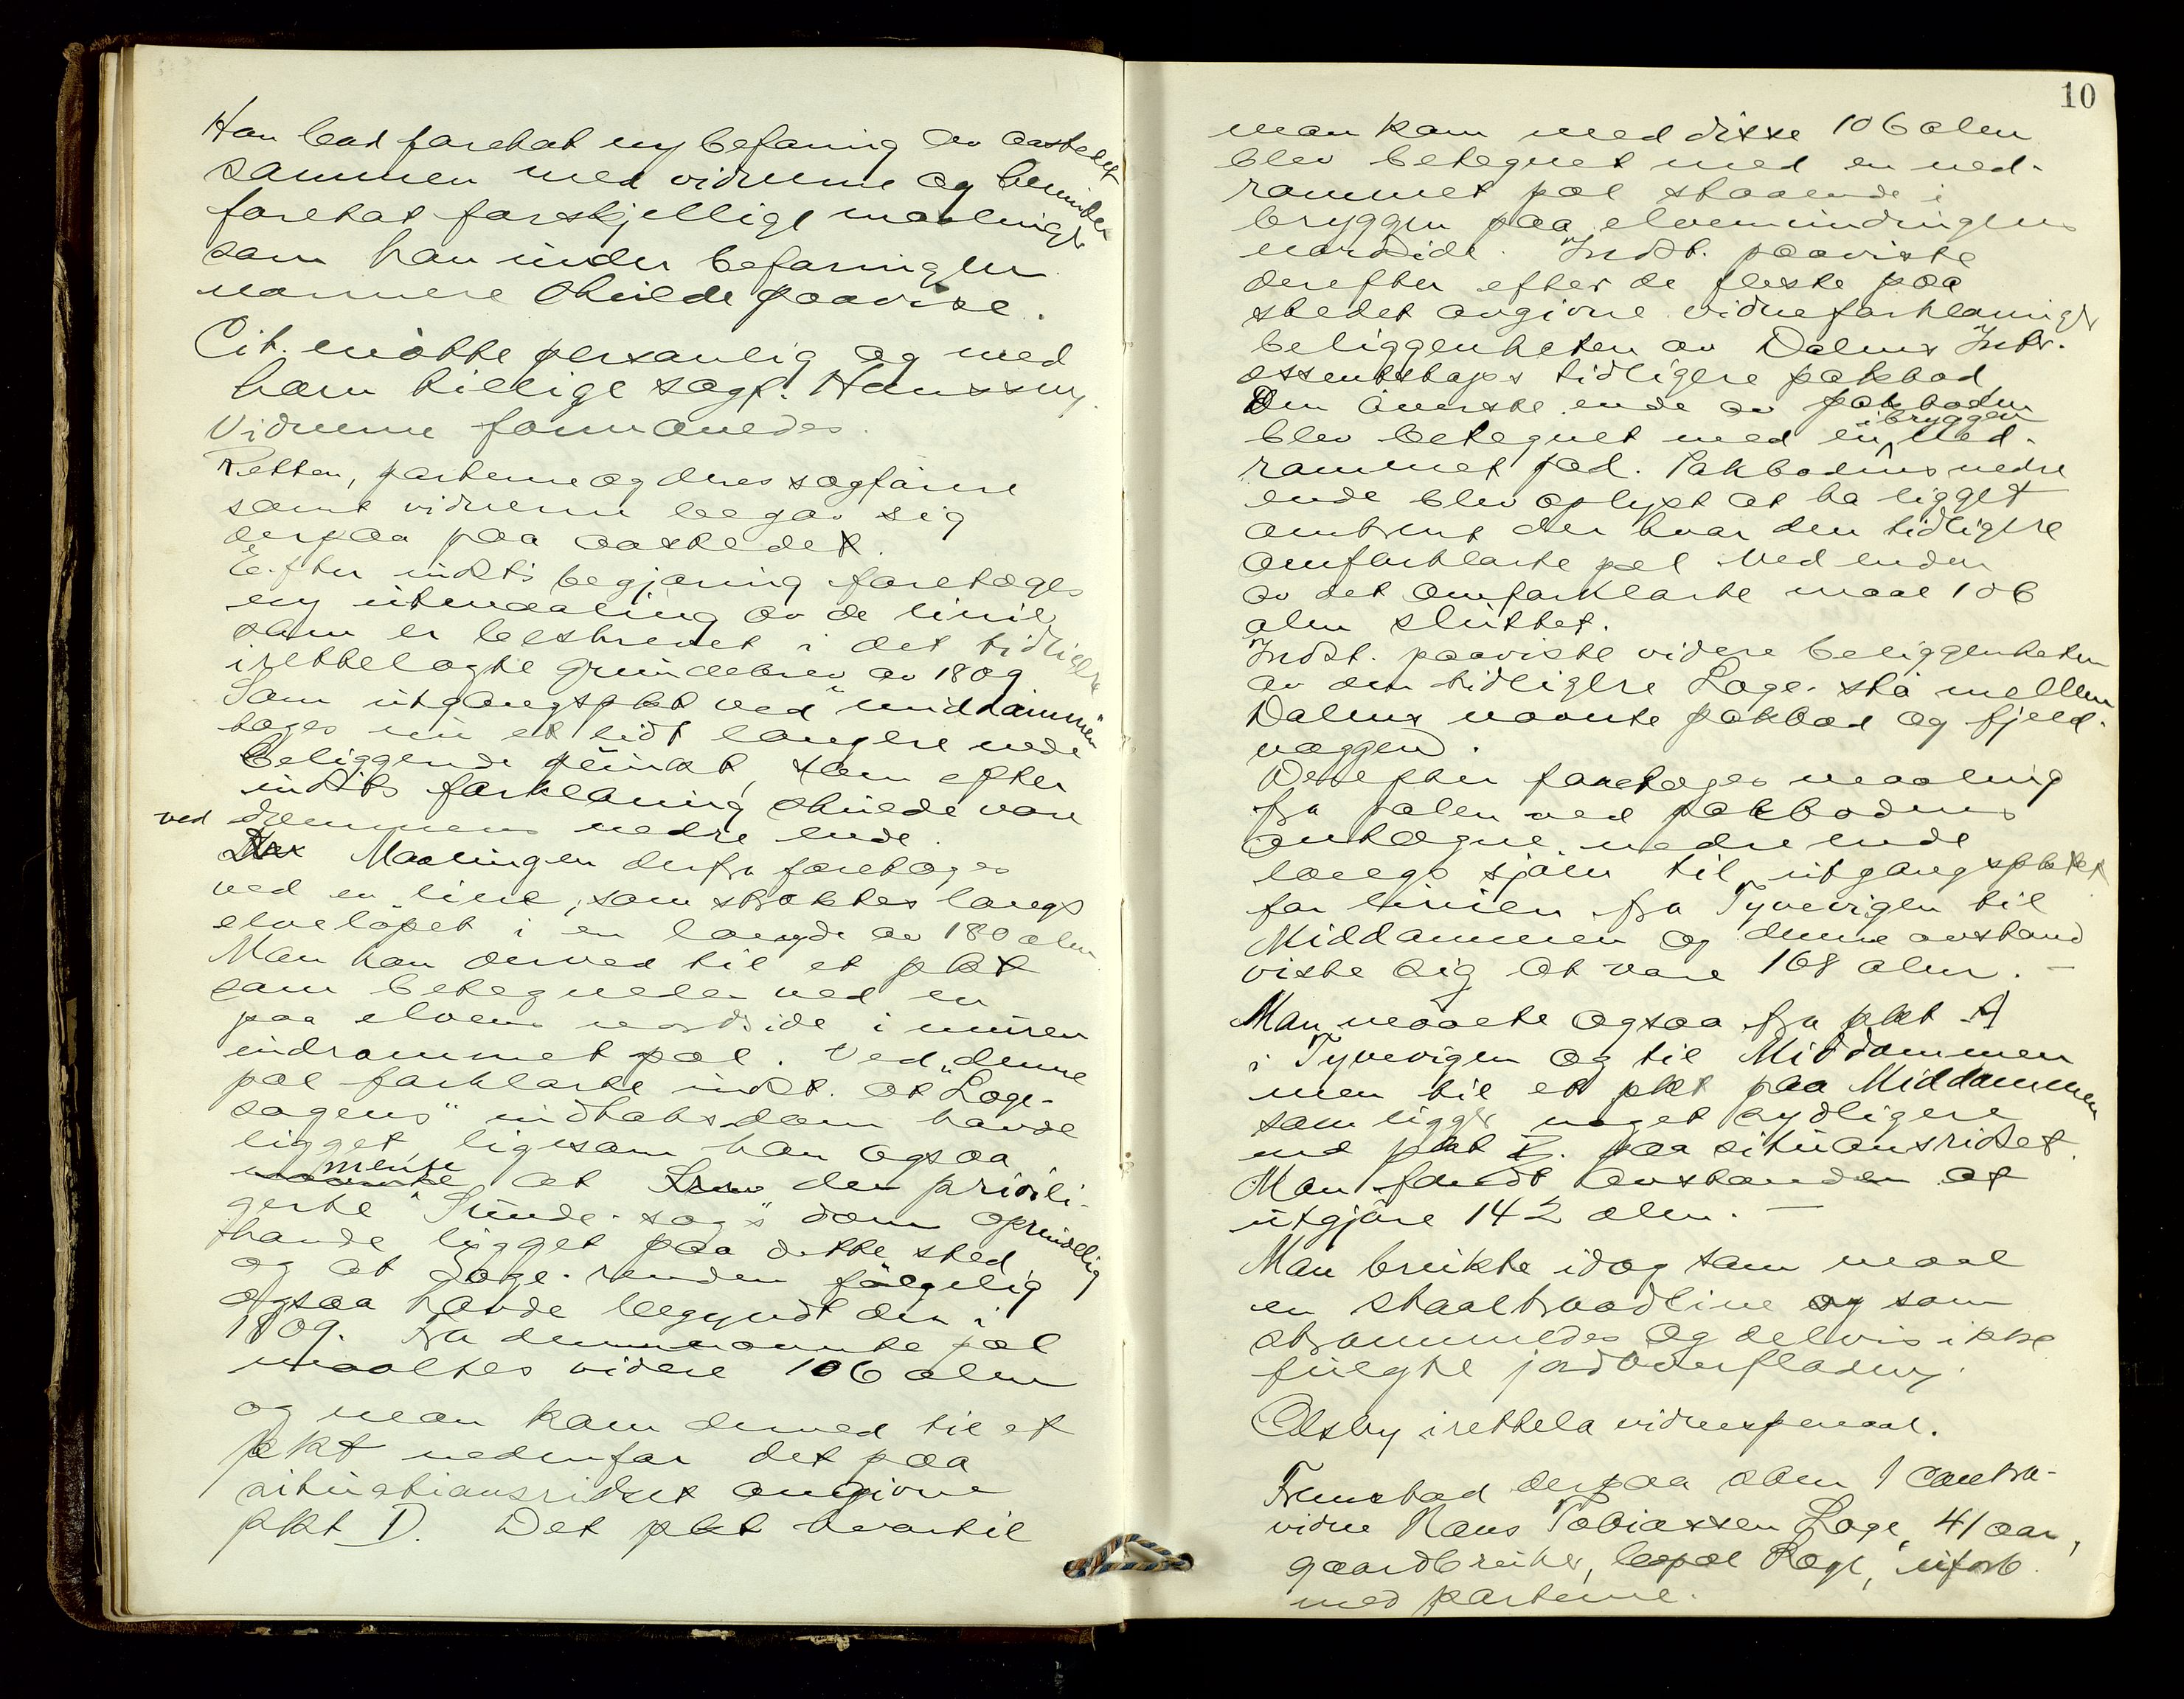 Han bad foretat ny befaring av aastedet
sammen med vidnerne og herunder
foretat forskjellige maalinger
som han under befaringen
nærmere skulde paavise.
Cit. møtte personlig og med
ham tillige sagf. Hanssen.
Vidnerne formanedes.
Retten, parterne og deres sagførere
samt vidnerne begav sig
derpaa paa aastedet.
Efter indst's begjæring foretoges
ny utmaaling av de linie,
som er beskrevet i det tidligere
irettelagte grundebrev av 1809
Som utgangspkt ved "middammen
toges nu et lidt længere nede
beliggende punkt, som efter
indsts forklaring skulde være
ved dammens nedre ende.
Maalingen derfra foretoges
ved en line, som strakkes langs
elveløpet i en længde av 180 alen.
Man kan derved til et pkt
som betegnedes ved en
paa elvens nordside i muren
indrammet pæl. Ved denne
pæl forklarte indst. at "Loge-
sagens" indtaksdam havde
ligget ligesom han ogsaa
mente at den privili-
gerte "Lunde-sag's" dam oprindelig
havde ligget paa dette sted
og at Loge-renden følgelig
ogsaa havde begyndt der i
1809. Fra dennævnte pæl
maaltes videre 106 alen
og man kom derved til et
pkt nedenfor det paa
situationsridset angivne
pkt D. Det pkt hvortil
10
man kom med disse 106 alen
blev betegnet med en ned-
rammet pæl staaende i
bryggen paa elvemundingens
nordside. Indst. paaviste
derefter efter de fleste paa
stedet avgivne vidneforklaringer
beliggenheten av Dalens Intr.
ossentskaps tidligere pakbod
Den øverste ende av pakboden
i bryggen
blev betegnet med en ned-
rammet pæl. Pakbodens nedre
ende blev oplyst at ha ligget
omtrent der hvor den tidligere
omforklarte pæl ved enden
av det omforklarte maal 106
alen sluttet.
Indst. paaviste videre beliggenheten
av den tidligere Loge-stø mellem
Dalens nævnte pakbod og fjeld-
væggen.
Derefter foretoges maaling
fra pælen ved pakbodens
antagne nedre ende
langs sjøen til utgangspktet
for linien fra Tyvevigen til
Middammen og denne avstand
viste sig at være 168 alen. —
Man maalte ogsaa fra pkt A
i Tyvevigen og til Middammen
men til et pkt paa Middammen
som ligger noget sydligere
end pkt paa situansridset.
Man fandt avstanden at
utgjøre 142 alen. —
Man brukte idag som maal
en staaltraadline og som
strammedes og delvis ikke
fulgte jordoverfladen.
Olsby irettela vidnespmaal.
Fremstod derpaa som 1 contra-
vidne Hans Tobiassen Loge, 41 aar,
gaardbruker, bopæl Loge, uforb.
med parterne.